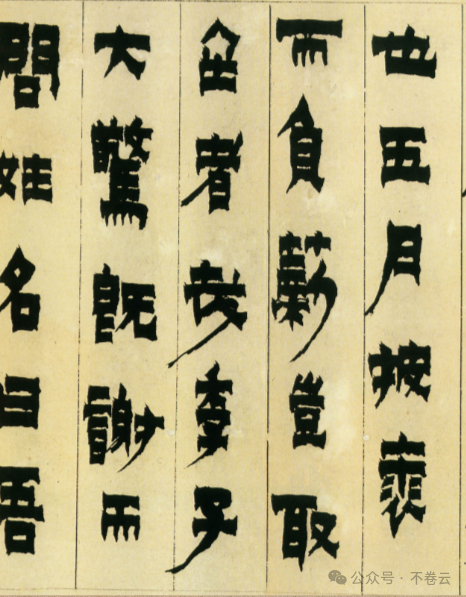 也五月披裘
而負薪豈取
金者哉季子
大驚既謝而
問姓名曰吾
公众号 · 不卷云